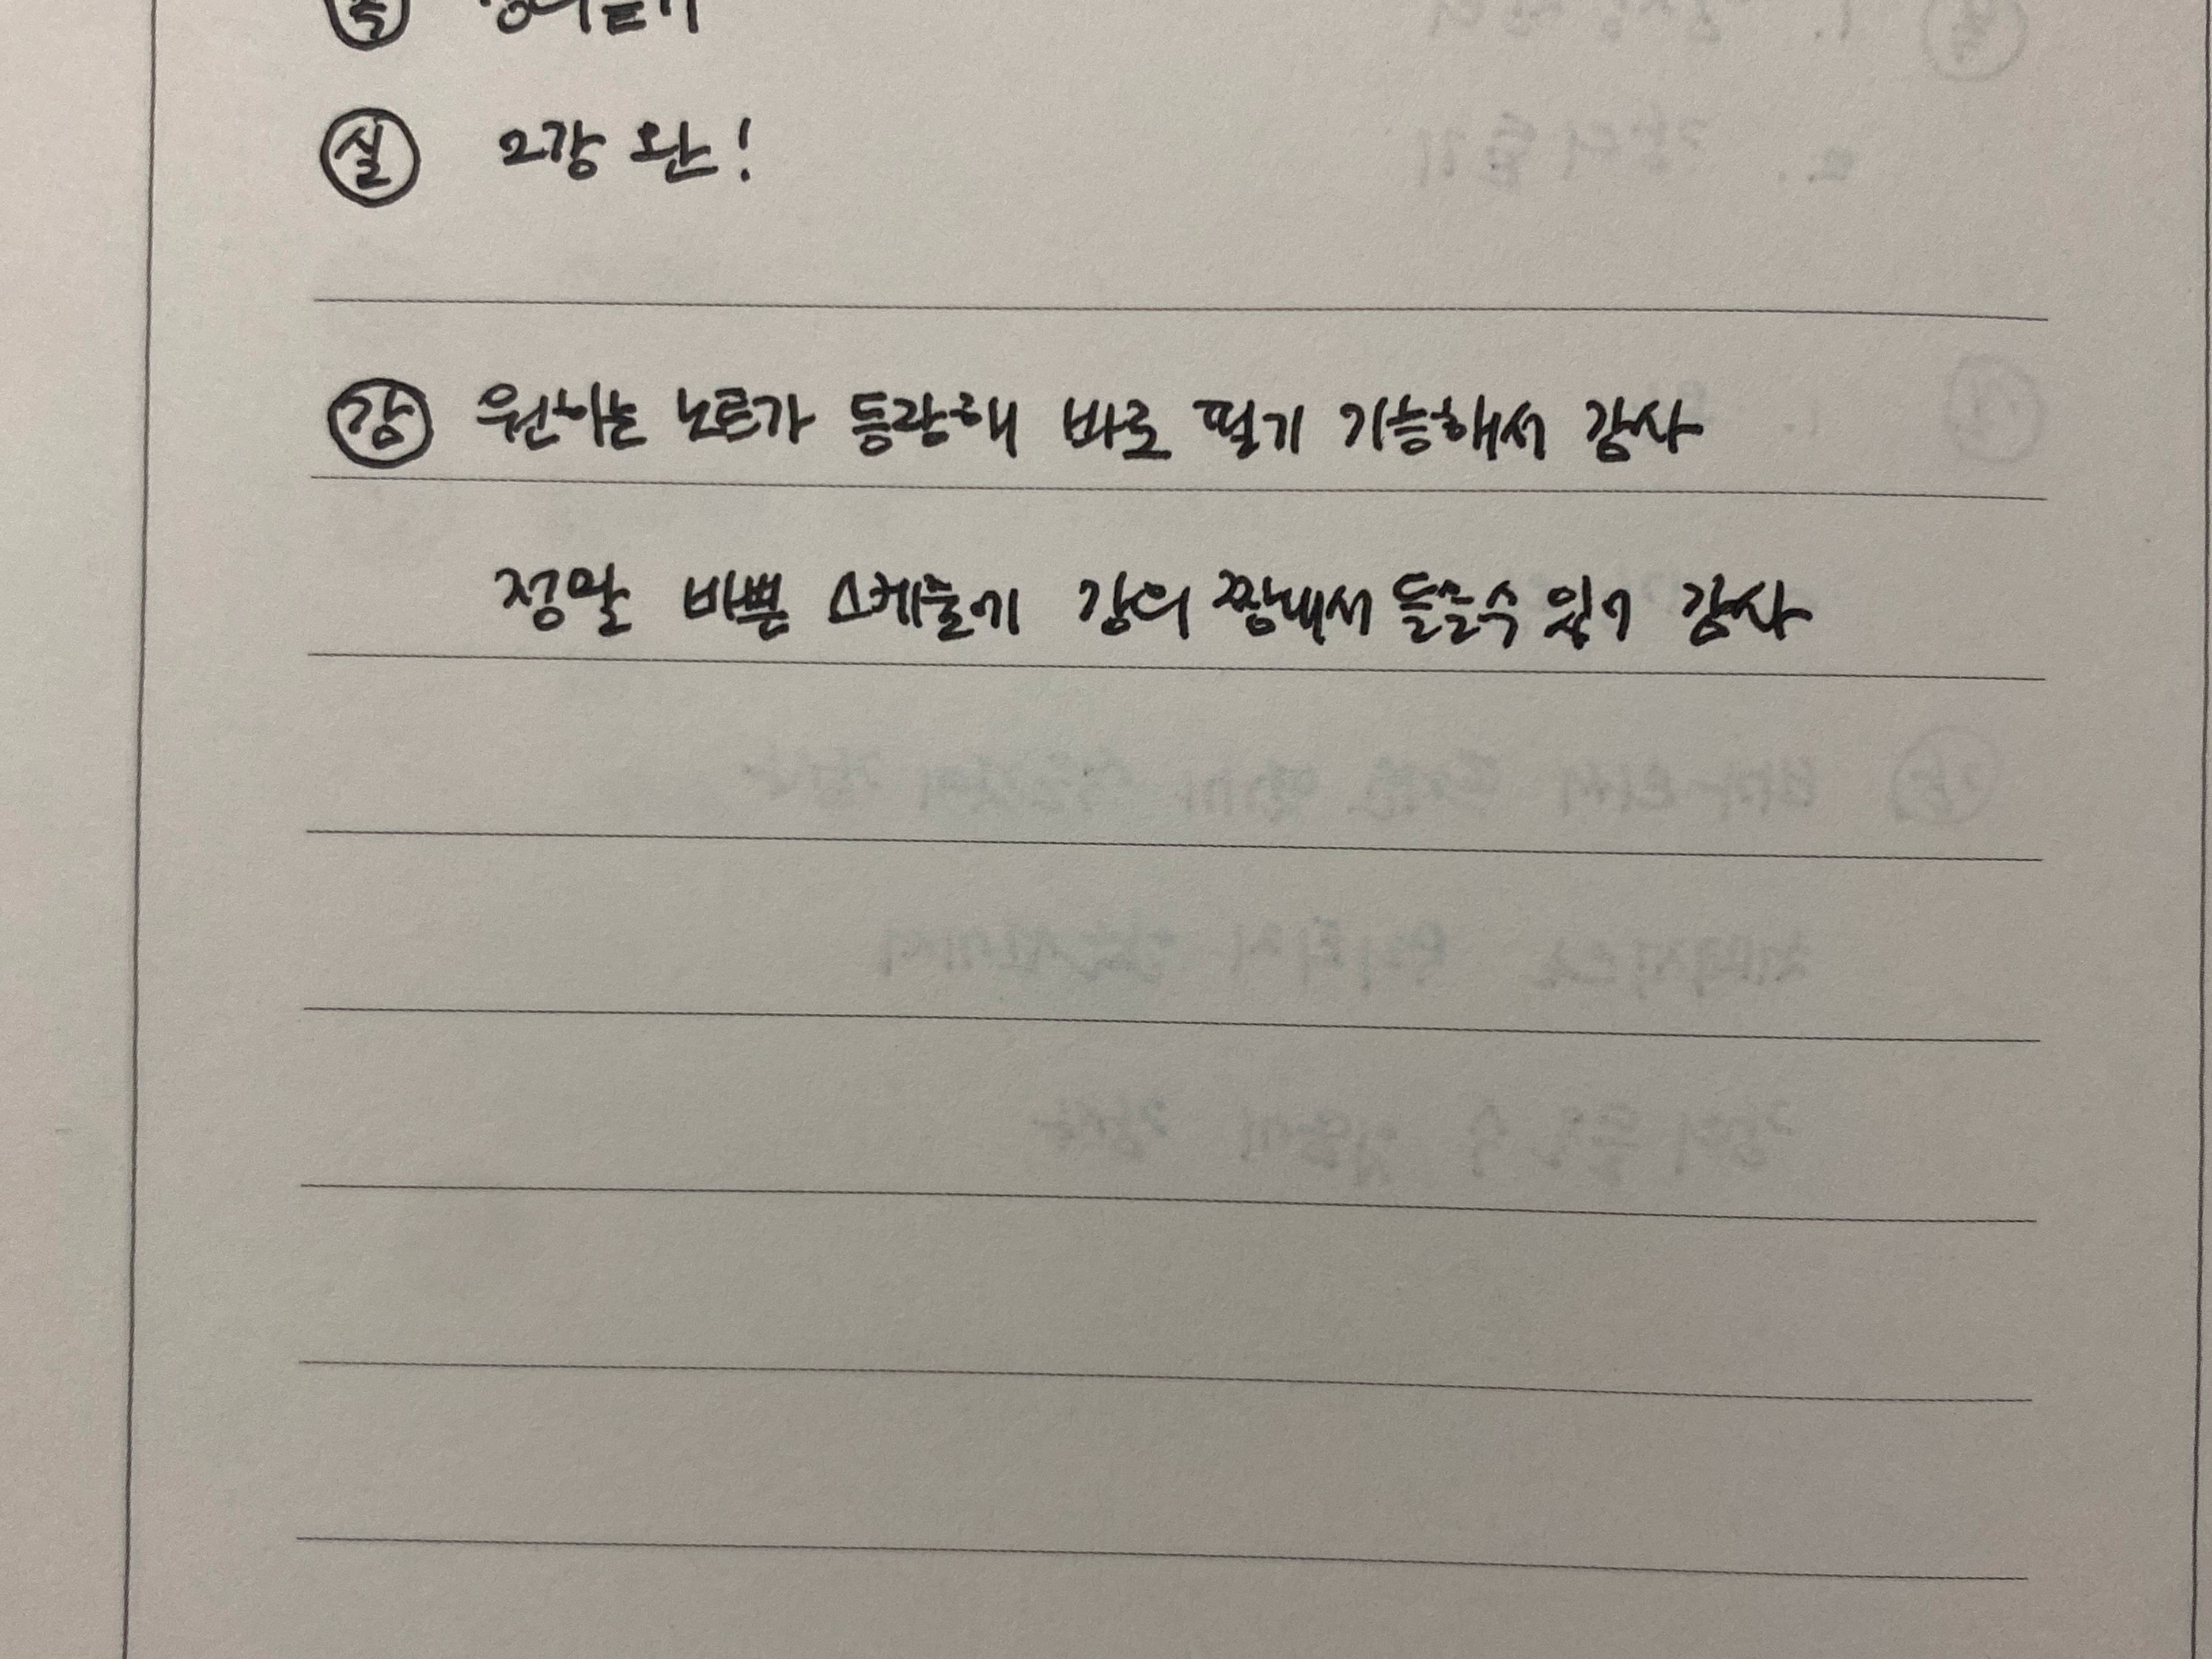 강의듣기
실 2강 완!
감 원하는 노트가 등장해 바로 필기 가능해서 감사
정말 바쁜 스케줄에 강의 짬내서 들을수 있기 감사